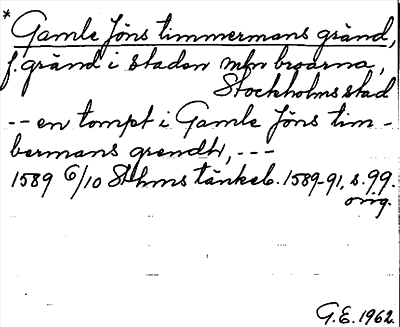 * Gamle Jöns timmermans gränd,
f. gränd i staden mln broarna,
Stockholms stad
-- en tompt i Gamle Jöns tim-
bermans grendh, ---
1589 6/10 Sthms tänkeb. 1589-91, s. 99.
orig.
G.E. 1962.